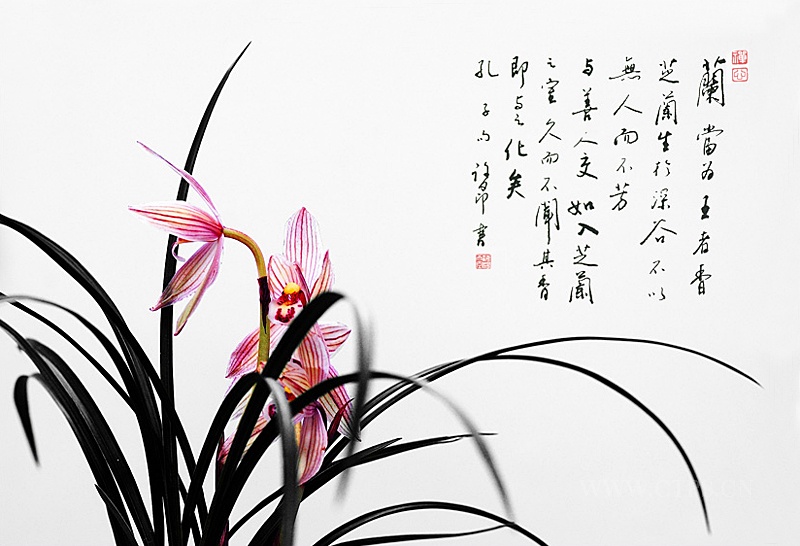 蘭當為王者香
芝蘭生於深谷不以
無人而不芳
与善人交如入芝蘭
之室久而不聞其香
即与之化矣
孔子句 書